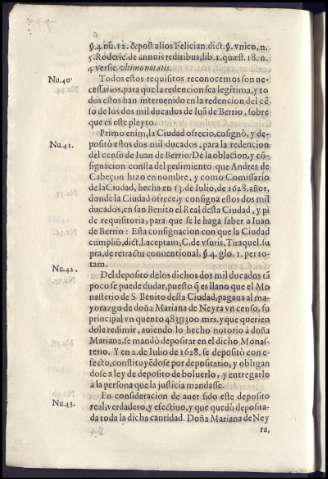 §.4.nu.12. & post alios Felician. dict. §. vnico, n.
5. Roderic. de annuis redditibus, lib. 1. quæst. 18. n.
4. versic. vltimo notatis.
Nu. 40. Todos estos requisitos reconocemos son ne-
cessarios, para que la redencion sea legitima, y to
dos estos han interuenido en la redencion del cẽ-
so de los dos mil ducados de Iuã de Berrio, sobre
que es este pleyto.
Nu. 41. Primo enim, la Ciudad ofrecio, cosignò, y de-
positò estos dos mil ducados, para la redencion
del censo de Iuan de Berrio: De la oblacion, y cõ-
signacion consta del pedimiento que Andres de
Cabeçun hizo en nombre, y como Comissario
de la Ciudad, hecha en 13. de Iulio, de 1628. años,
donde la Ciudad ofrece, y consigna estos dos mil
ducados, en san Benito el Real desta Ciudad, y pi
de requisitoria, para que se le haga saber a Iuan
de Berrio: Esta consignacion con que la Ciudad
cumpliò, dict. l. acceptam, C. de vsuris, Tiraquel. su
pra, de retractu conuentional. §. 4. glo. 1. per to-
tam.
Nu. 42. Del deposito de los dichos dos mil ducados tã
poco se puede dudar, puesto q̃ es llano que el Mo
nasterio de S. Benito desta Ciudad, pagaua al ma
yorazgo de doña Mariana de Neyra vn censo, su
principal vn quento 483U300. mrs. y que querien
dole redimir, auiendo lo hecho notorio à doña
Mariana, se mandò depositar en el dicho Monas-
terio. Y en 2. de Iulio de 1628. se depositò con ef-
fecto, constituyẽdose por depositario, y obligan
dose a ley de deposito de boluerlo, y entregarlo
a la persona que la justicia mandasse.
Nu. 43. En consideracion de auer sido este deposito
real, verdadero, y efectiuo, y que quedò deposita-
da toda la dicha cantidad. Doña Mariana de Ney
ra,